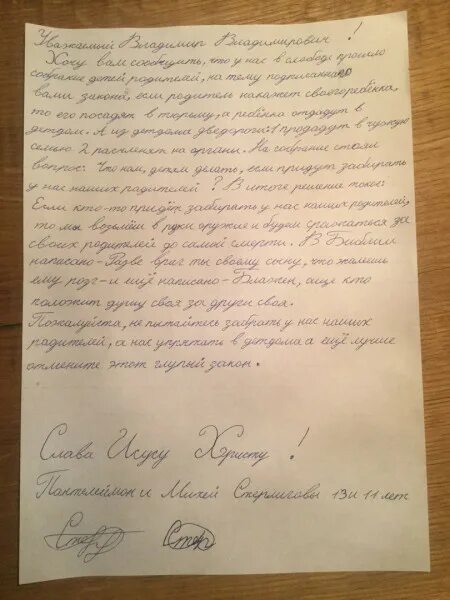 Уважаемый Владимир Владимирович!
Хочу вам сообщить, что у нас в слободе прошло
собрание детей родителей, на тему подписанного
вами закона, если родитель накажет своего ребёнка,
то его посадят в тюрьму, а ребёнка отдадут в
детдом. А из детдома две дороги: 1 продадут в чужую
семью 2 расчленят на органы. На собрание стоял
вопрос: Что нам, детям делать, если придут забирать
у нас наших радителей? В итоге решение такое:
Если кто-то придёт забирать у нас наших родителей,
то мы возьмём в руки оружие и будем сражаться за
своих родителей до самой смерти. В Библии
написано-Разве враг ты своему сыну, что жалеешь
ему розг-и ещё написано-Блажен, аще кто
положит душу своя за други своя.
Пожалуйста, не пытайтесь забрать у нас наших
радителей, а нас упрятать в детдома а ещё лучше
отмените этот глупый закон.
Слава Исусу Христу!
Пантелеймон и Михей Стерлиговы 13 и 11 лет
Стер